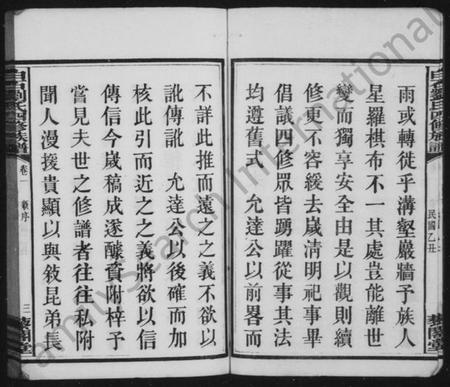 雨或轉徙乎溝壑巖牆予族人
星羅棋布不一其處豈能離世
變而獨享安全由是以觀則續
修更不容緩去歲清明祀事畢
倡議四修眾皆踴躍從事其法
均遵舊式　允達公以前畧而
不詳此推而遠之之義不欲以
訛傳訛　允達公以後確而加
核此引而近之之義將欲以信
傳信今歲稿成遂醵資附梓予
嘗見夫世之修譜者往往私附
聞人漫援貴顯以與敍昆弟長
民國乙丑
敦閣堂
四修族譜
卷一
敍序
三
Family Search International